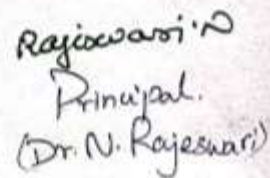 Rajeswari. N
Principal.
(Dr. N. Rajeswari)